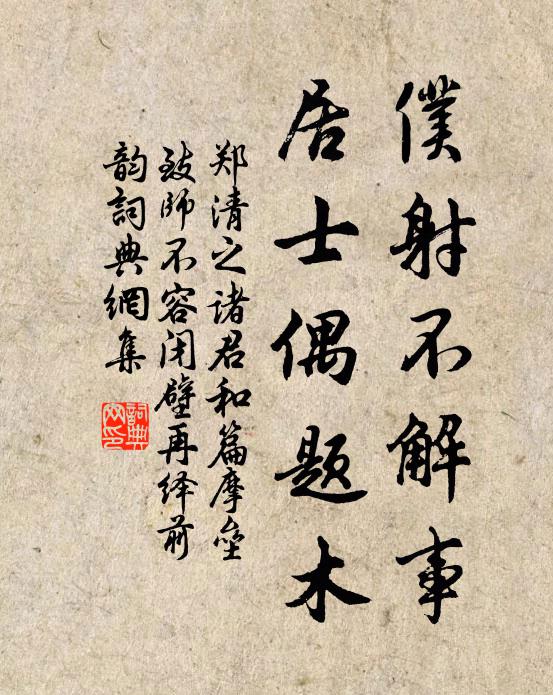 僕射不解事
居士偶题木
郑清之诸君和篇摩垒
致師不容闭壁再绎前
韵詞典網集
詞典网印